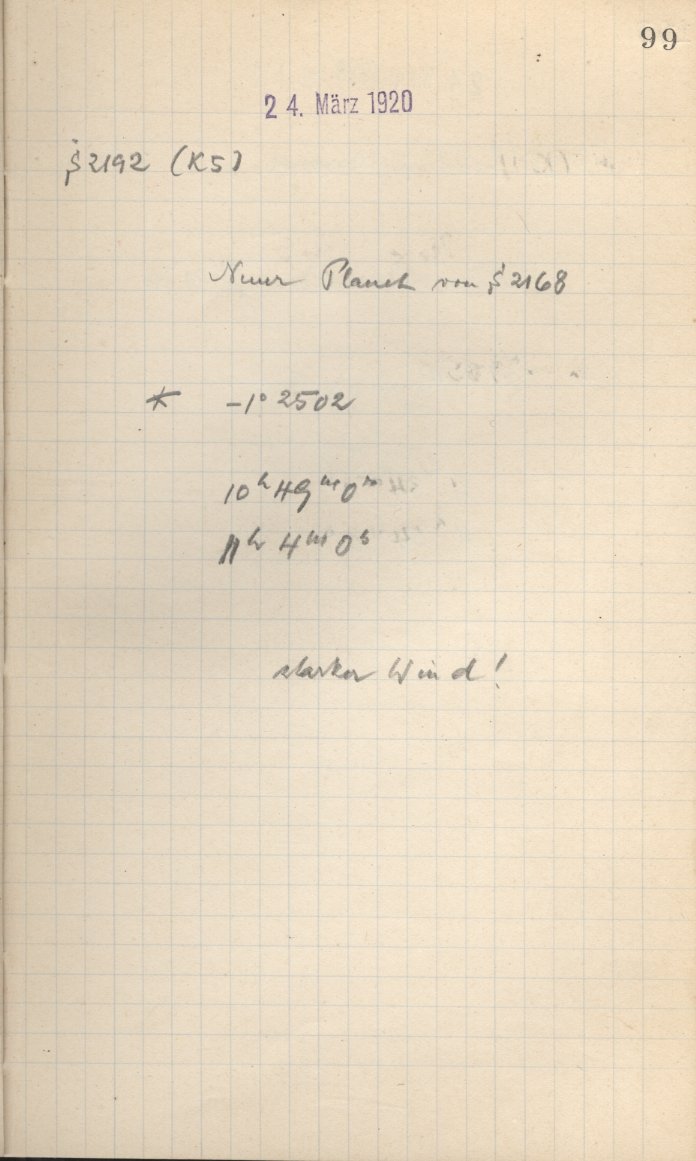 99
24. März 1920
§ 2192 (K5)
Neuer Planet von § 2168
* -1° 2502
10h 49m 0s
11h 4m 0s
starker Wind!